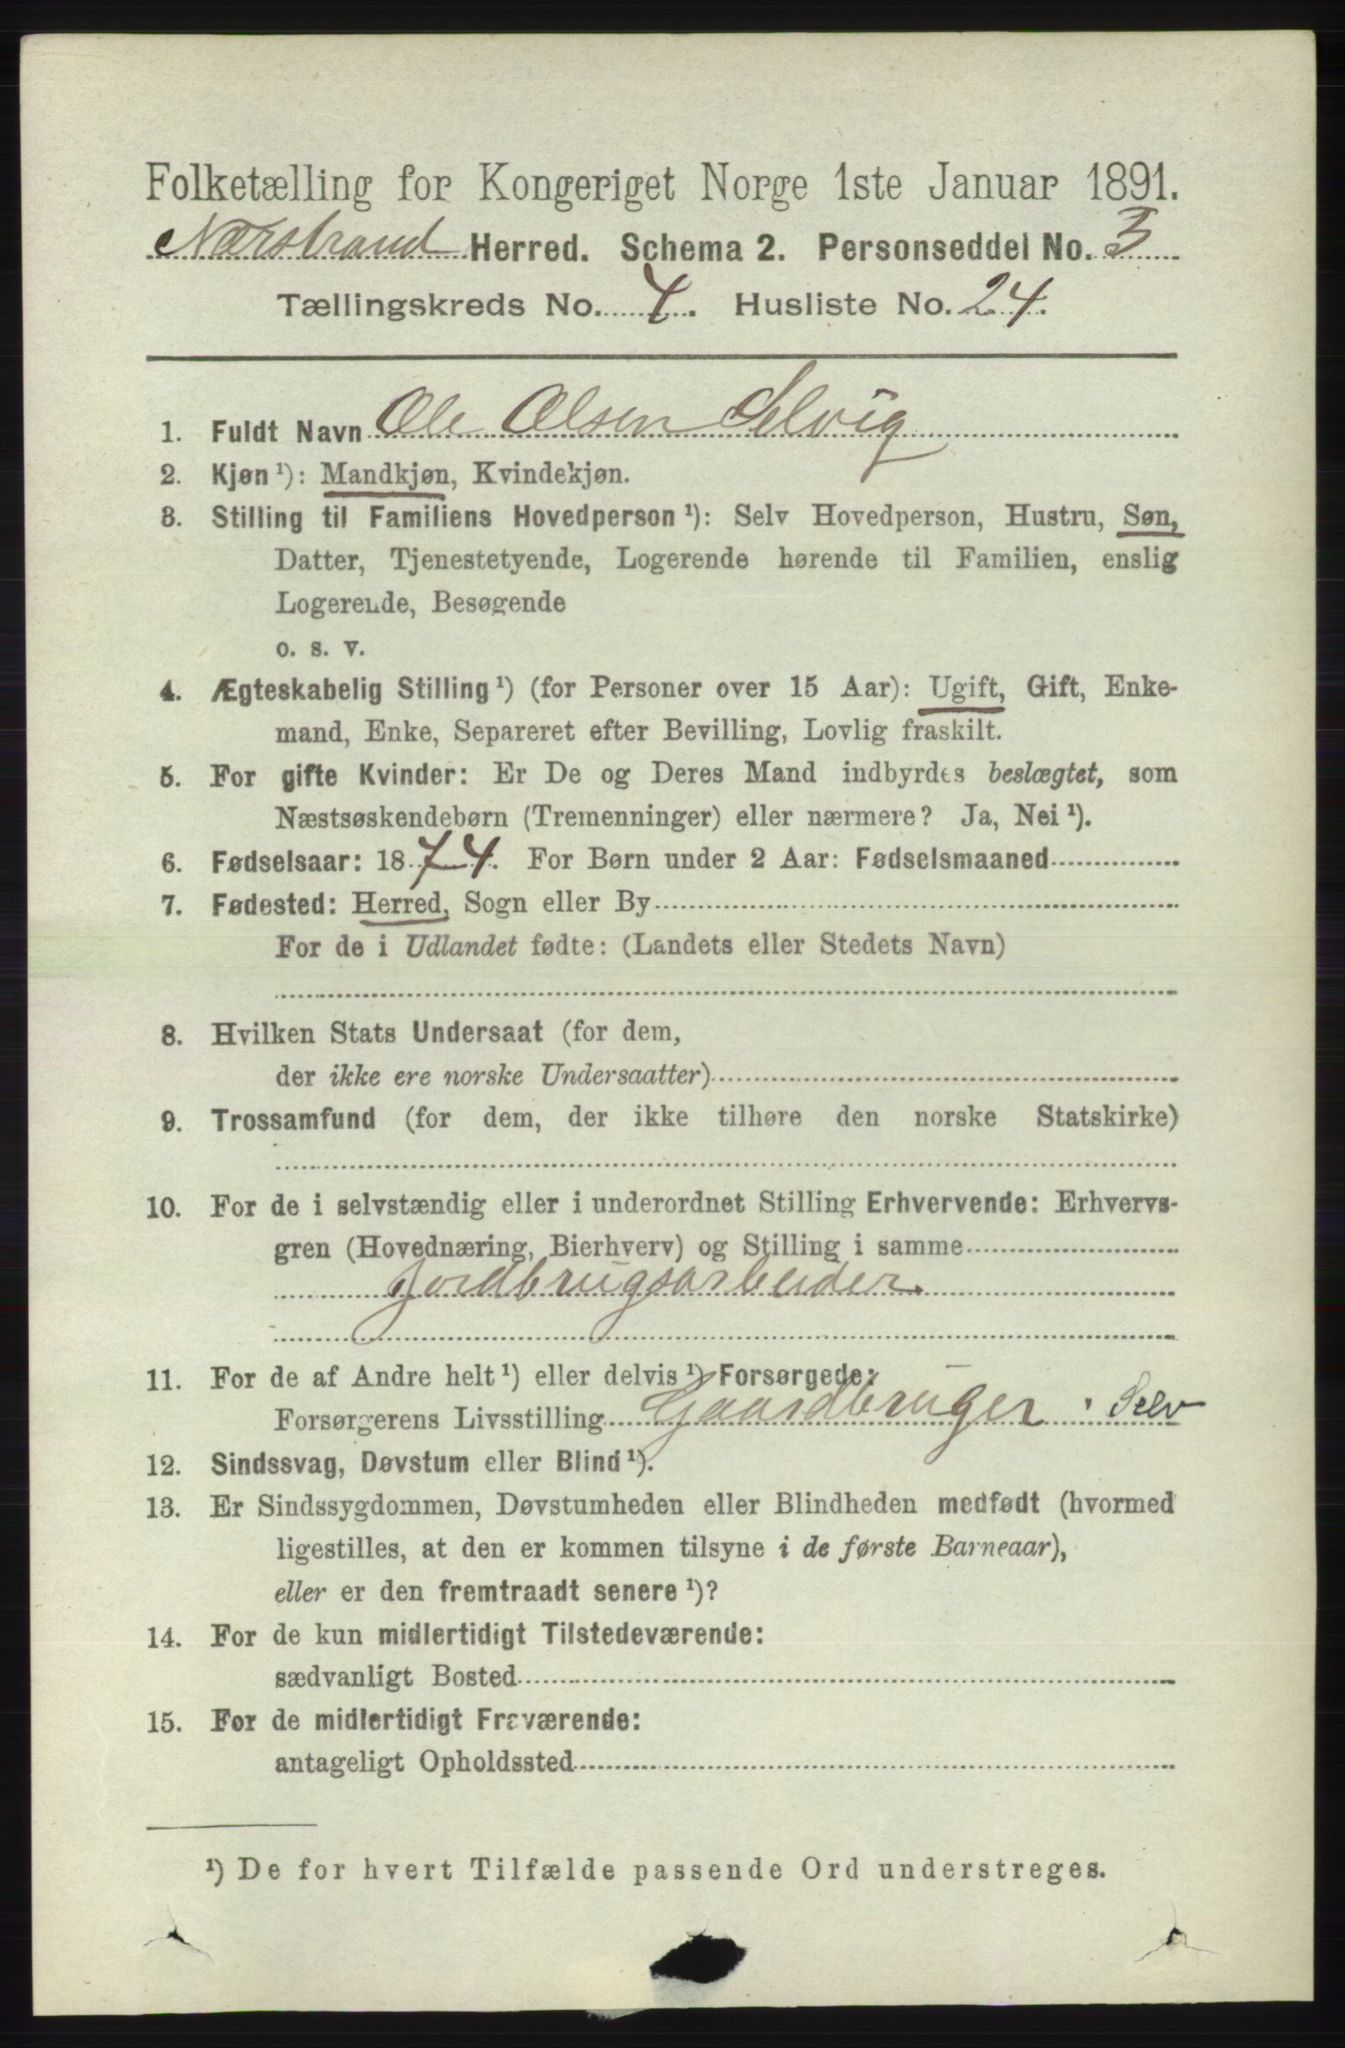 Folketælling for Kongeriget Norge 1ste Januar 1891.
Nærstrand Herred. Schema 2. Personseddel No. 3
Tællingskreds No. 4. Husliste No. 24.
1. Fuldt Navn Ole Olsen Selvig
2. Kjøn ¹): Mandkjøn, Kvindekjøn.
3. Stilling til Familiens Hovedperson ¹): Selv Hovedperson, Hustru, Søn,
Datter, Tjenestetyende, Logerende hørende til Familien, enslig
Logerende, Besøgende
o. s. v.
4. Ægteskabelig Stilling ¹) (for Personer over 15 Aar): Ugift, Gift, Enke-
mand, Enke, Separeret efter Bevilling, Lovlig fraskilt.
5. For gifte Kvinder: Er De og Deres Mand indbyrdes beslægtet, som
Næstsøskendebørn (Tremenninger) eller nærmere? Ja, Nei ¹).
6. Fødselsaar: 1874. For Børn under 2 Aar: Fødselsmaaned
7. Fødested: Herred, Sogn eller By
For de i Udlandet fødte: (Landets eller Stedets Navn)
8. Hvilken Stats Undersaat (for dem,
der ikke ere norske Undersaatter)
9. Trossamfund (for dem, der ikke tilhøre den norske Statskirke)
10. For de i selvstændig eller i underordnet Stilling Erhvervende: Erhvervs-
gren (Hovednæring, Bierhverv) og Stilling i samme
Jordbrugsarbeider.
11. For de af Andre helt ¹) eller delvis ¹) Forsørgede:
Forsørgerens Livsstilling Gaardbruger. Selv
12. Sindssvag, Døvstum eller Blind ¹).
13. Er Sindssygdommen, Døvstumheden eller Blindheden medfødt (hvormed
ligestilles, at den er kommen tilsyne i de første Barneaar),
eller er den fremtraadt senere ¹)?
14. For de kun midlertidigt Tilstedeværende:
sædvanligt Bosted
15. For de midlertidigt Fraværende:
antageligt Opholdssted
¹) De for hvert Tilfælde passende Ord understreges.